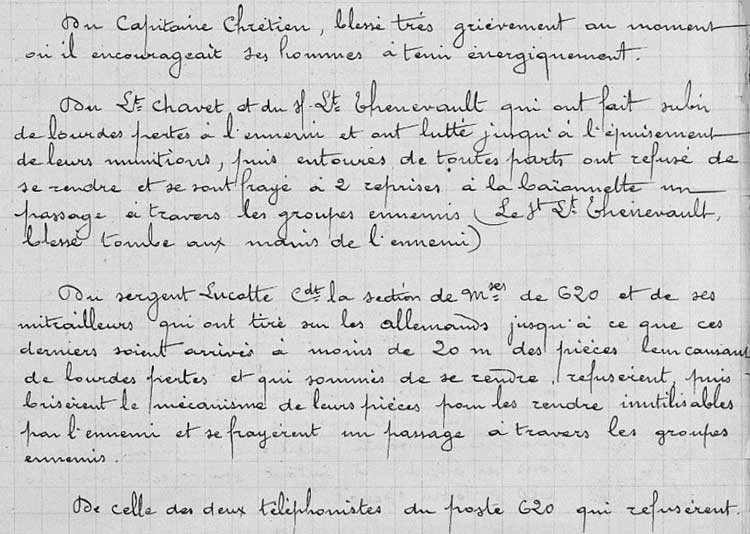 Du Capitaine Chrétien, blessé très grièvement au moment
où il encourageait ses hommes à tenir énergiquement.
Du Lt Chavet et du s/-Lt Thenevault qui ont fait subir
de lourdes pertes à l'ennemi et ont lutté jusqu'à l'épuisement
de leurs munitions, puis entourés de toutes parts ont refusé de
se rendre et se sont frayé à 2 reprises à la baïonnette un
passage à travers les groupes ennemis (Le st Lt Thenevault,
blessé tombe aux mains de l'ennemi)
Du sergent Lucotte Cdt la section de Mses de 620 et de ses
mitrailleurs qui ont tiré sur les allemands jusqu'à ce que ces
derniers soient arrivés à moins de 20 m des pièces leur causant
de lourdes pertes et qui sommés de se rendre, refusèrent, puis
brisèrent le mécanisme de leurs pièces pour les rendre inutilisables
par l'ennemi et se frayèrent un passage à travers les groupes
ennemis.
De celle des deux téléphonistes du poste 620 qui refusèrent.